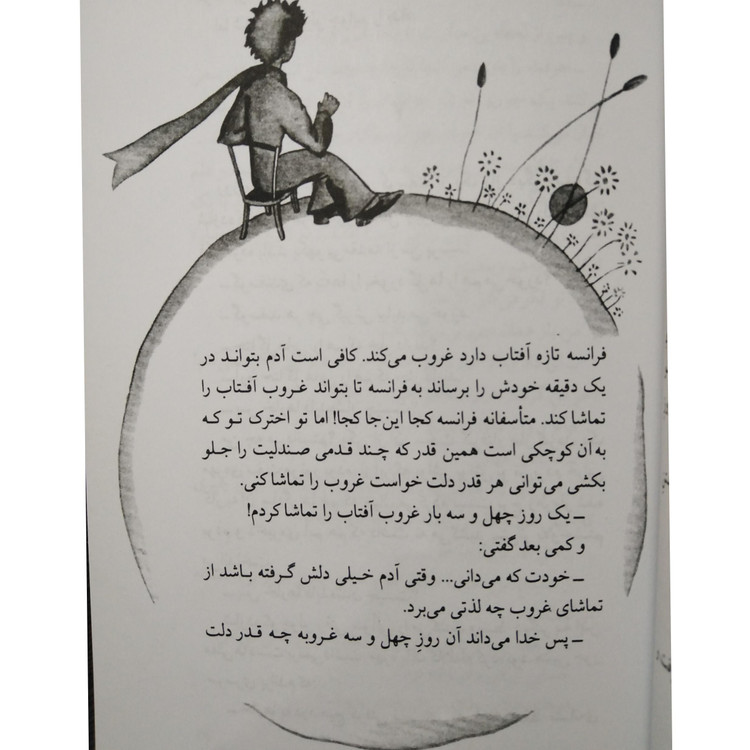 فرانسه تازه آفتاب دارد غروب می‌کند. کافی است آدم بتواند در
یک دقیقه خودش را برساند به فرانسه تا بتواند غروب آفتاب را
تماشا کند. متأسفانه فرانسه کجا این‌جا کجا! اما تو اخترک تو که
به آن کوچکی است همین قدر که چند قدمی صندلیت را جلو
بکشی می‌توانی هر قدر دلت خواست غروب را تماشا کنی.
ـ یک روز چهل و سه بار غروب آفتاب را تماشا کردم!
و کمی بعد گفتی:
ـ خودت که می‌دانی... وقتی آدم خیلی دلش گرفته باشد از
تماشای غروب چه لذتی می‌برد.
ـ پس خدا می‌داند آن روزِ چهل و سه غروبه چه قدر دلت